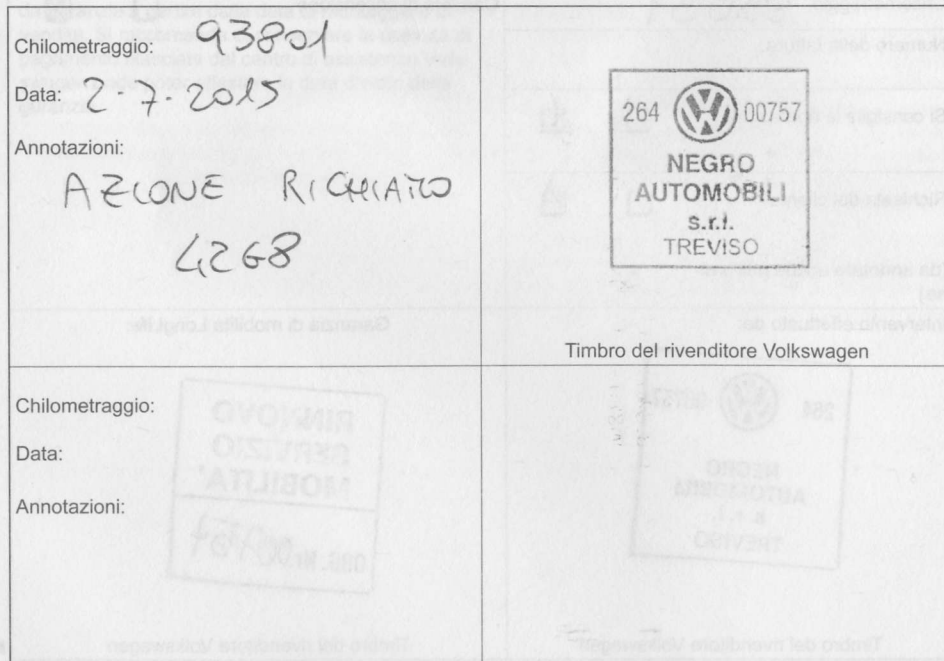 Chilometraggio: 93801
Data: 2-7-2015
Annotazioni:
AZIONE RICHIAMO
42G8
264 00757
NEGRO
AUTOMOBILI
s.r.l.
TREVISO
Timbro del rivenditore Volkswagen
Chilometraggio:
Data:
Annotazioni: